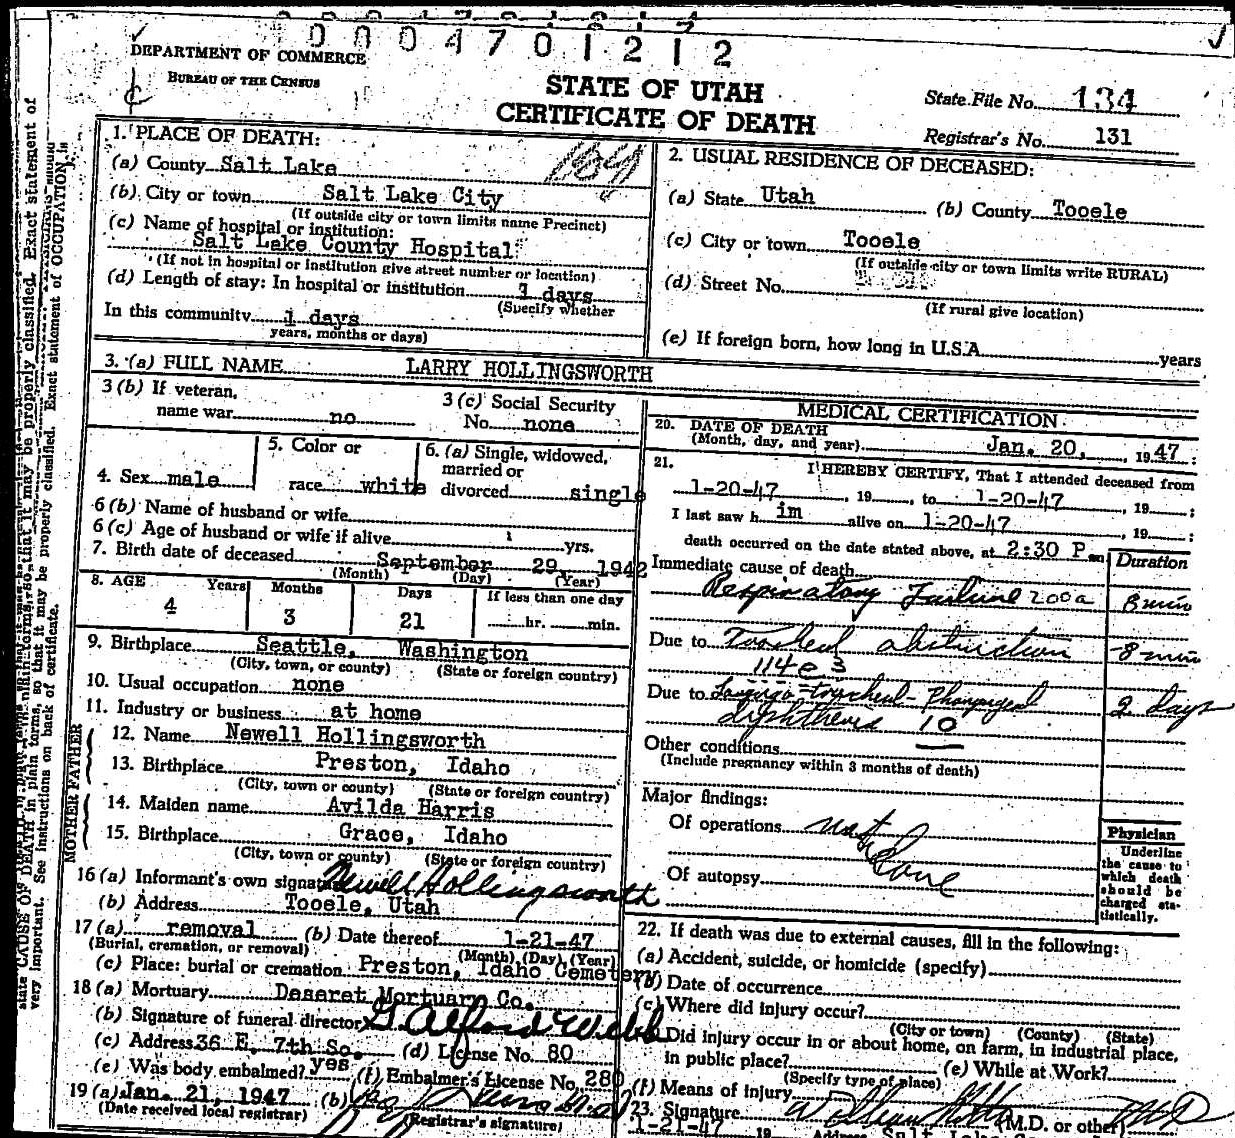 0004701212
DEPARTMENT OF COMMERCE
BUREAU OF THE CENSUS
STATE OF UTAH
CERTIFICATE OF DEATH
State File No. 134
Registrar's No. 131
1. PLACE OF DEATH:
(a) County Salt Lake
(b) City or town Salt Lake City
(If outside city or town limits name Precinct)
(c) Name of hospital or institution:
Salt Lake County Hospital
(If not in hospital or institution give street number or location)
(d) Length of stay: In hospital or institution 1 days
(Specify whether
In this community 1 days
years, months or days)
2. USUAL RESIDENCE OF DECEASED:
(a) State Utah (b) County Tooele
(c) City or town Tooele
(If outside city or town limits write RURAL)
(d) Street No.
(If rural give location)
(e) If foreign born, how long in U.S.A. years
3. (a) FULL NAME LARRY HOLLINGSWORTH
3 (b) If veteran,
name war no
3 (c) Social Security
No. none
4. Sex male
5. Color or
race white
6. (a) Single, widowed,
married or
divorced single
6 (b) Name of husband or wife
6 (c) Age of husband or wife if alive yrs.
7. Birth date of deceased September 29, 1942
(Month) (Day) (Year)
8. AGE Years Months Days If less than one day
4 3 21 hr. min.
9. Birthplace Seattle, Washington
(City, town, or county) (State or foreign country)
10. Usual occupation none
11. Industry or business at home
FATHER
12. Name Newell Hollingsworth
13. Birthplace Preston, Idaho
(City, town or county) (State or foreign country)
MOTHER
14. Maiden name Avilda Harris
15. Birthplace Grace, Idaho
(City, town or county) (State or foreign country)
16 (a) Informant's own signature Newell Hollingsworth
(b) Address Tooele, Utah
17 (a) removal (b) Date thereof 1-21-47
(Burial, cremation, or removal) (Month) (Day) (Year)
(c) Place: burial or cremation Preston, Idaho Cemetery
18 (a) Mortuary Deseret Mortuary Co.
(b) Signature of funeral director G. Alford Webb
(c) Address 36 E. 7th So. (d) License No. 80
(e) Was body embalmed? yes (f) Embalmer's License No. 280
19 (a) Jan. 21, 1947 (b)
(Date received local registrar) (Registrar's signature)
MEDICAL CERTIFICATION
20. DATE OF DEATH
(Month, day, and year) Jan. 20, 1947
21. I HEREBY CERTIFY, That I attended deceased from
1-20-47, 19 , to 1-20-47, 19 ;
I last saw h im alive on 1-20-47, 19 ;
death occurred on the date stated above, at 2:30 P.m
Duration
Immediate cause of death
Respiratory Failure 200a 8 min
Due to Tracheal obstruction 8 min
114e3
Due to Laryngo-tracheal-Pharyngeal 2 days
diphtheria 10
Other conditions
(Include pregnancy within 3 months of death)
Major findings:
Of operations not
done
Of autopsy
Physician
Underline
the cause to
which death
should be
charged sta-
tistically.
22. If death was due to external causes, fill in the following:
(a) Accident, suicide, or homicide (specify)
(b) Date of occurrence
(c) Where did injury occur?
(City or town) (County) (State)
Did injury occur in or about home, on farm, in industrial place,
in public place? (e) While at Work?
(Specify type of place)
(f) Means of injury
23. Signature William (M.D. or other)
1-21-47 19 Address Salt Lake
state CAUSE OF DEATH in plain terms, so that it may be properly classified. Exact statement of OCCUPATION is
very important. See instructions on back of certificate.